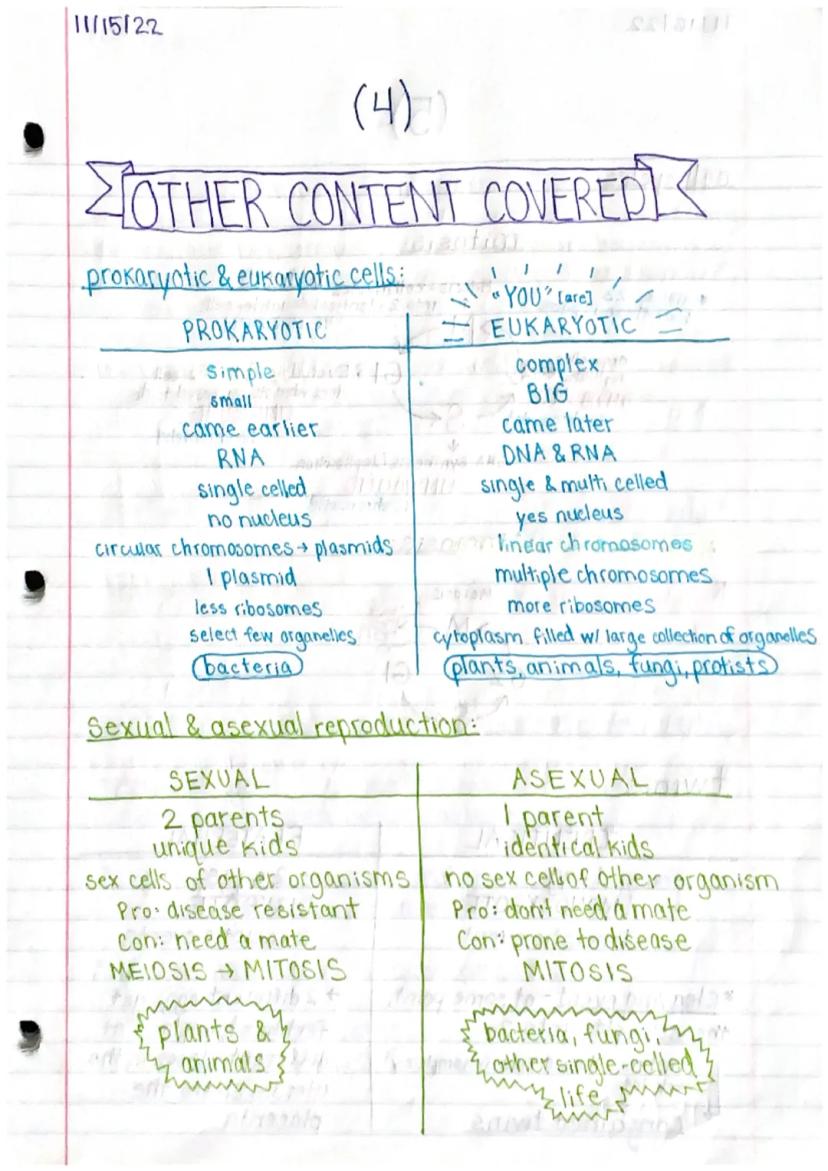 11/15/22
(4)
OTHER CONTENT COVERED
prokaryotic & eukaryotic cells:
"YOU" [are]
PROKARYOTIC EUKARYOTIC
simple complex
small BIG
came earlier came later
RNA DNA & RNA
single celled single & multi celled
no nucleus yes nucleus
circular chromosomes → plasmids linear chromosomes
1 plasmid multiple chromosomes
less ribosomes more ribosomes
select few organelles cytoplasm filled w/ large collection of organelles
bacteria plants, animals, fungi, protists
Sexual & asexual reproduction:
SEXUAL ASEXUAL
2 parents 1 parent
unique kids identical kids
sex cells of other organisms no sex cell of other organism
Pro: disease resistant Pro: don't need a mate
Con: need a mate Con: prone to disease
MEIOSIS → MITOSIS MITOSIS
plants & bacteria, fungi,
animals other single-celled
life